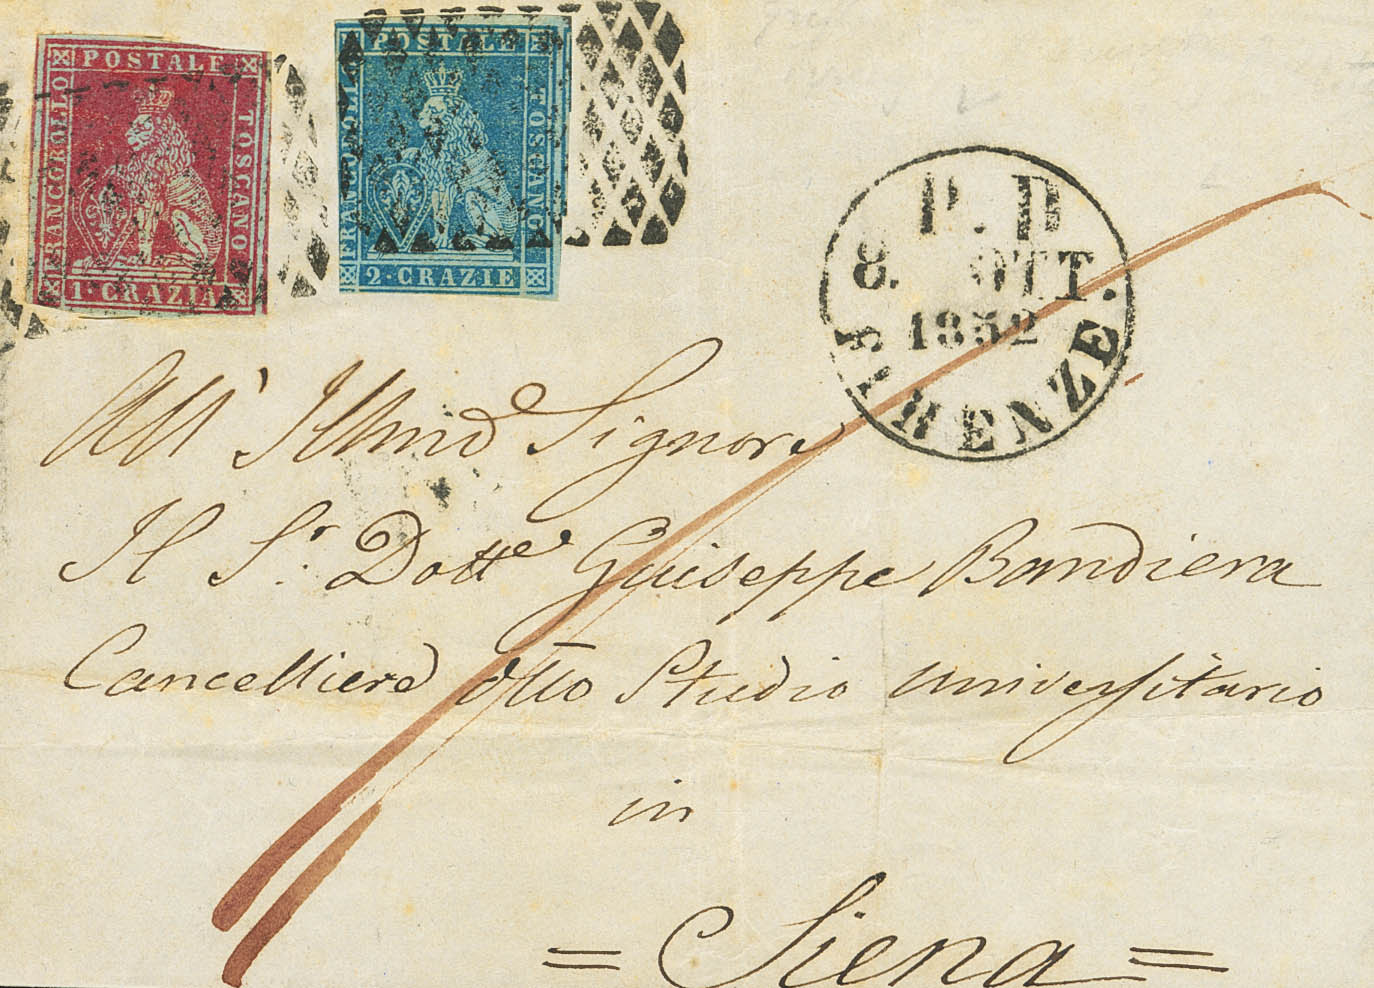 POSTALE
FRANCOBOLLO
TOSCANO
1 · CRAZIA
POSTALE
FRANCOBOLLO
TOSCANO
2 · CRAZIE
P. D
8. OTT.
1852
FIRENZE
All' Illmo Signore
Il Sr. Dotte Guiseppe Bandiera
Cancelliere Studio Universitario
in
= Siena =